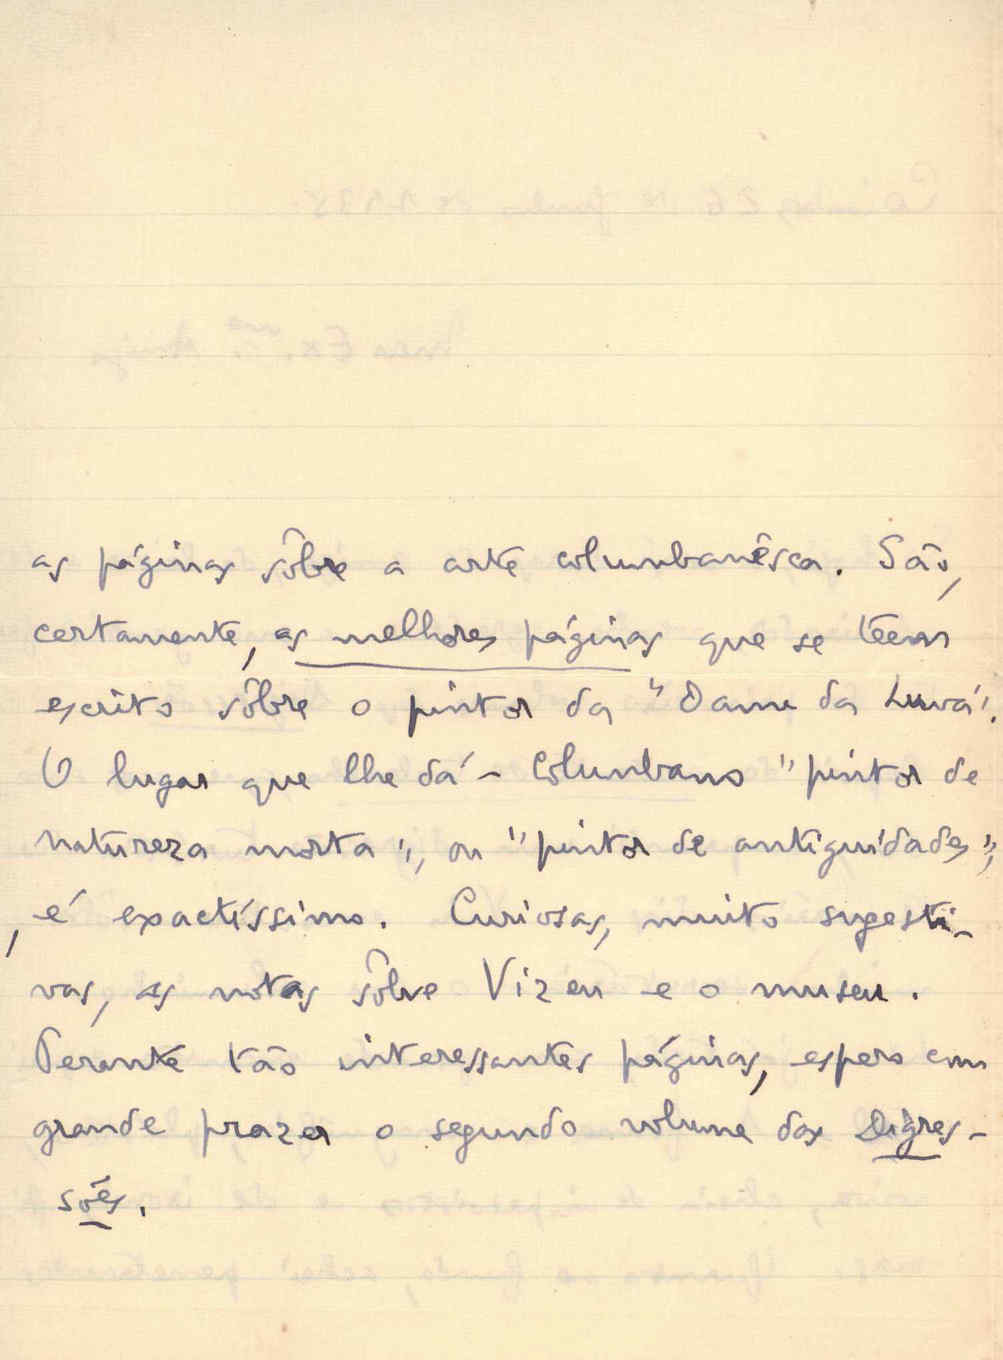 as páginas sôbre a arte columbanêsca. São,
certamente, as melhores páginas que se têem
escrito sôbre o pintor da "Dama da Luva".
O lugar que lhe dá - Columbano "pintor de
natureza morta", ou "pintor de antiguidades",
, é exactíssimo. Curiosas, muito sugesti-
vas, as notas sôbre Vizeu e o museu.
Perante tão interessantes páginas, espero com
grande prazer o segundo volume das Digres-
sões.